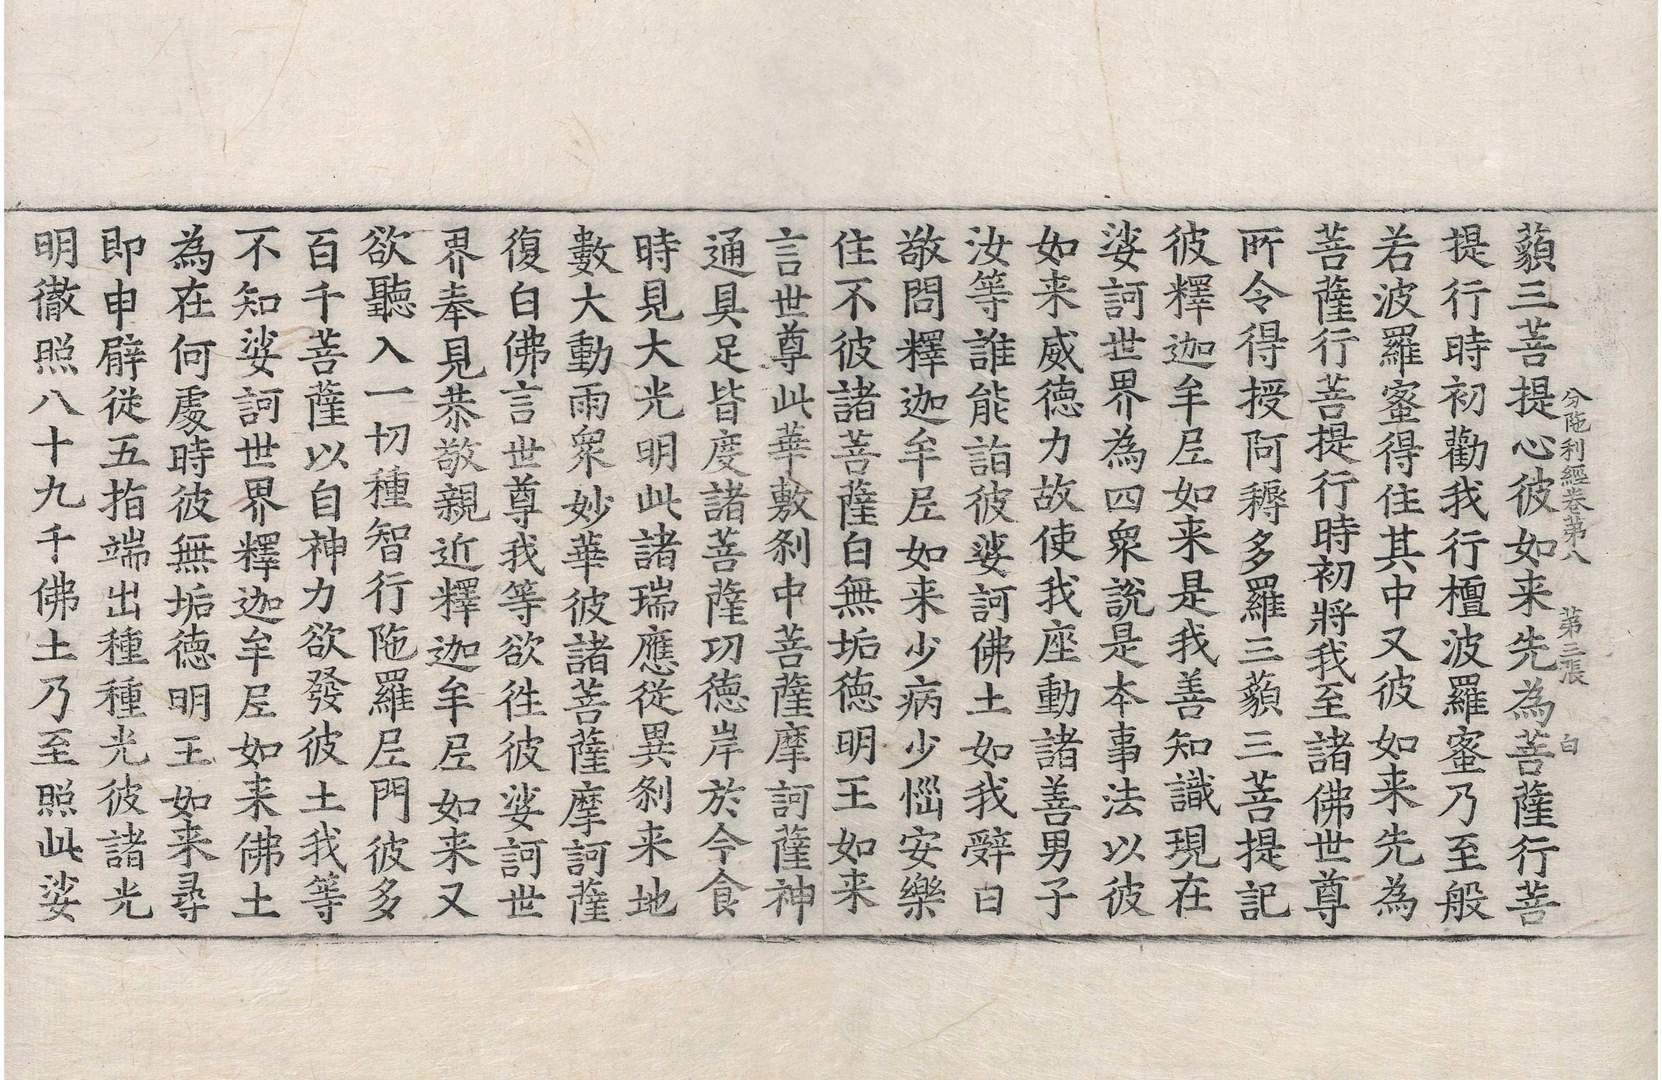 分陁利經卷第八　第三張　白
藐三菩提心彼如来先為菩薩行菩
提行時初勸我行檀波羅蜜乃至般
若波羅蜜得住其中又彼如来先為
菩薩行菩提行時初將我至諸佛世尊
所令得授阿耨多羅三藐三菩提記
彼釋迦牟𡰱如来是我善知識現在
娑訶世界為四衆說是本事法以彼
如来威德力故使我座動諸善男子
汝等誰能詣彼娑訶佛土如我辭曰
敬問釋迦牟𡰱如来少病少惱安樂
住不彼諸菩薩白無垢德明王如来
言世尊此華敷刹中菩薩摩訶薩神
通具足皆度諸菩薩功德岸於今食
時見大光明此諸瑞應從異刹来地
數大動雨衆妙華彼諸菩薩摩訶薩
復白佛言世尊我等欲徃彼娑訶世
界奉見恭敬親近釋迦牟𡰱如来又
欲聽入一切種智行陁羅𡰱門彼多
百千菩薩以自神力欲發彼土我等
不知娑訶世界釋迦牟𡰱如来佛土
為在何處時彼無垢德明王如来尋
即申臂從五指端出種種光彼諸光
明徹照八十九千佛土乃至照此娑